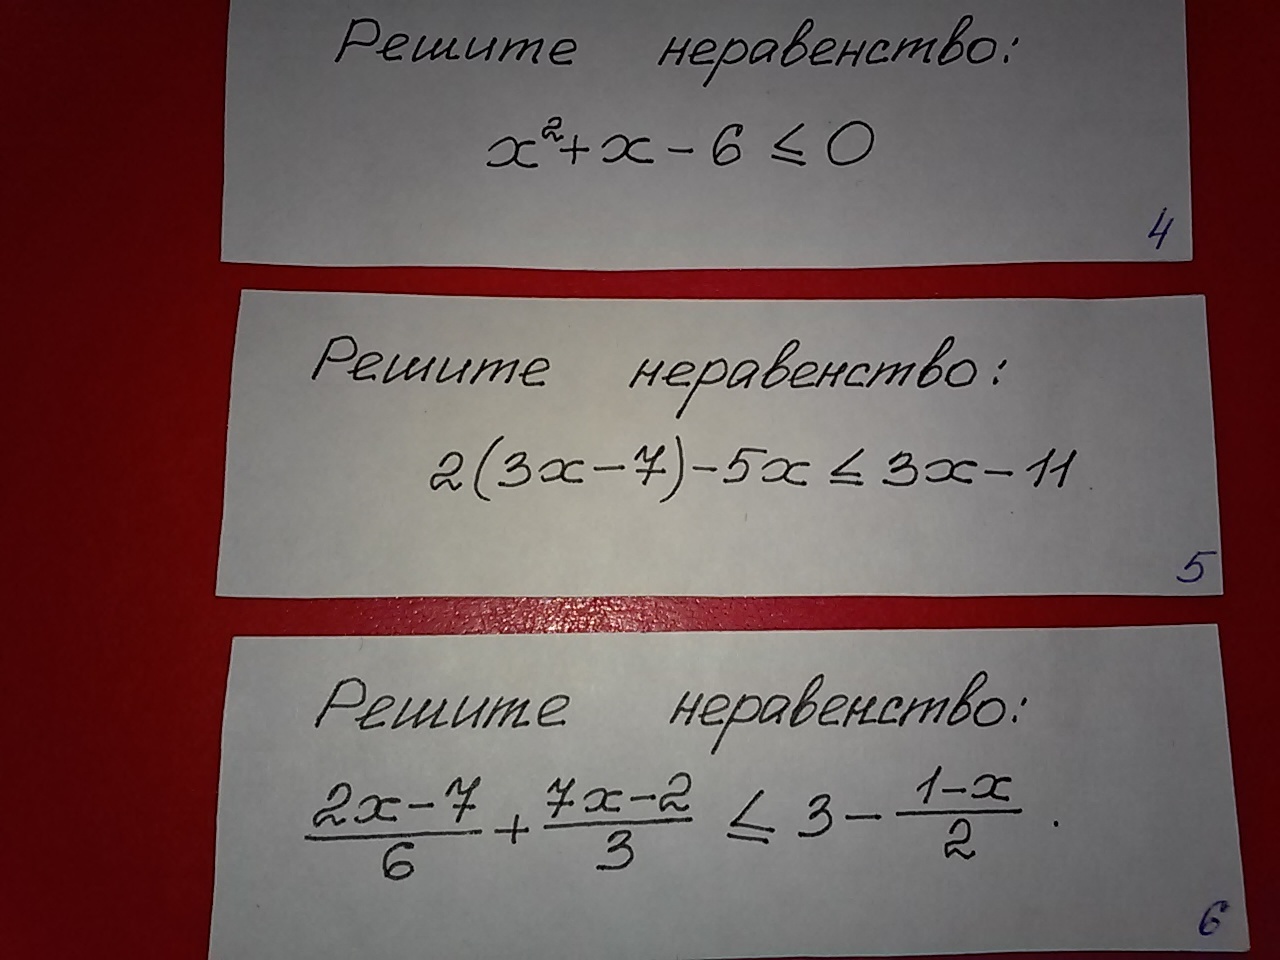 Решите неравенство:
x² + x - 6 ≤ 0
4
Решите неравенство:
2(3x - 7) - 5x ≤ 3x - 11
5
Решите неравенство:
(2x - 7)/6 + (7x - 2)/3 ≤ 3 - (1 - x)/2 .
6